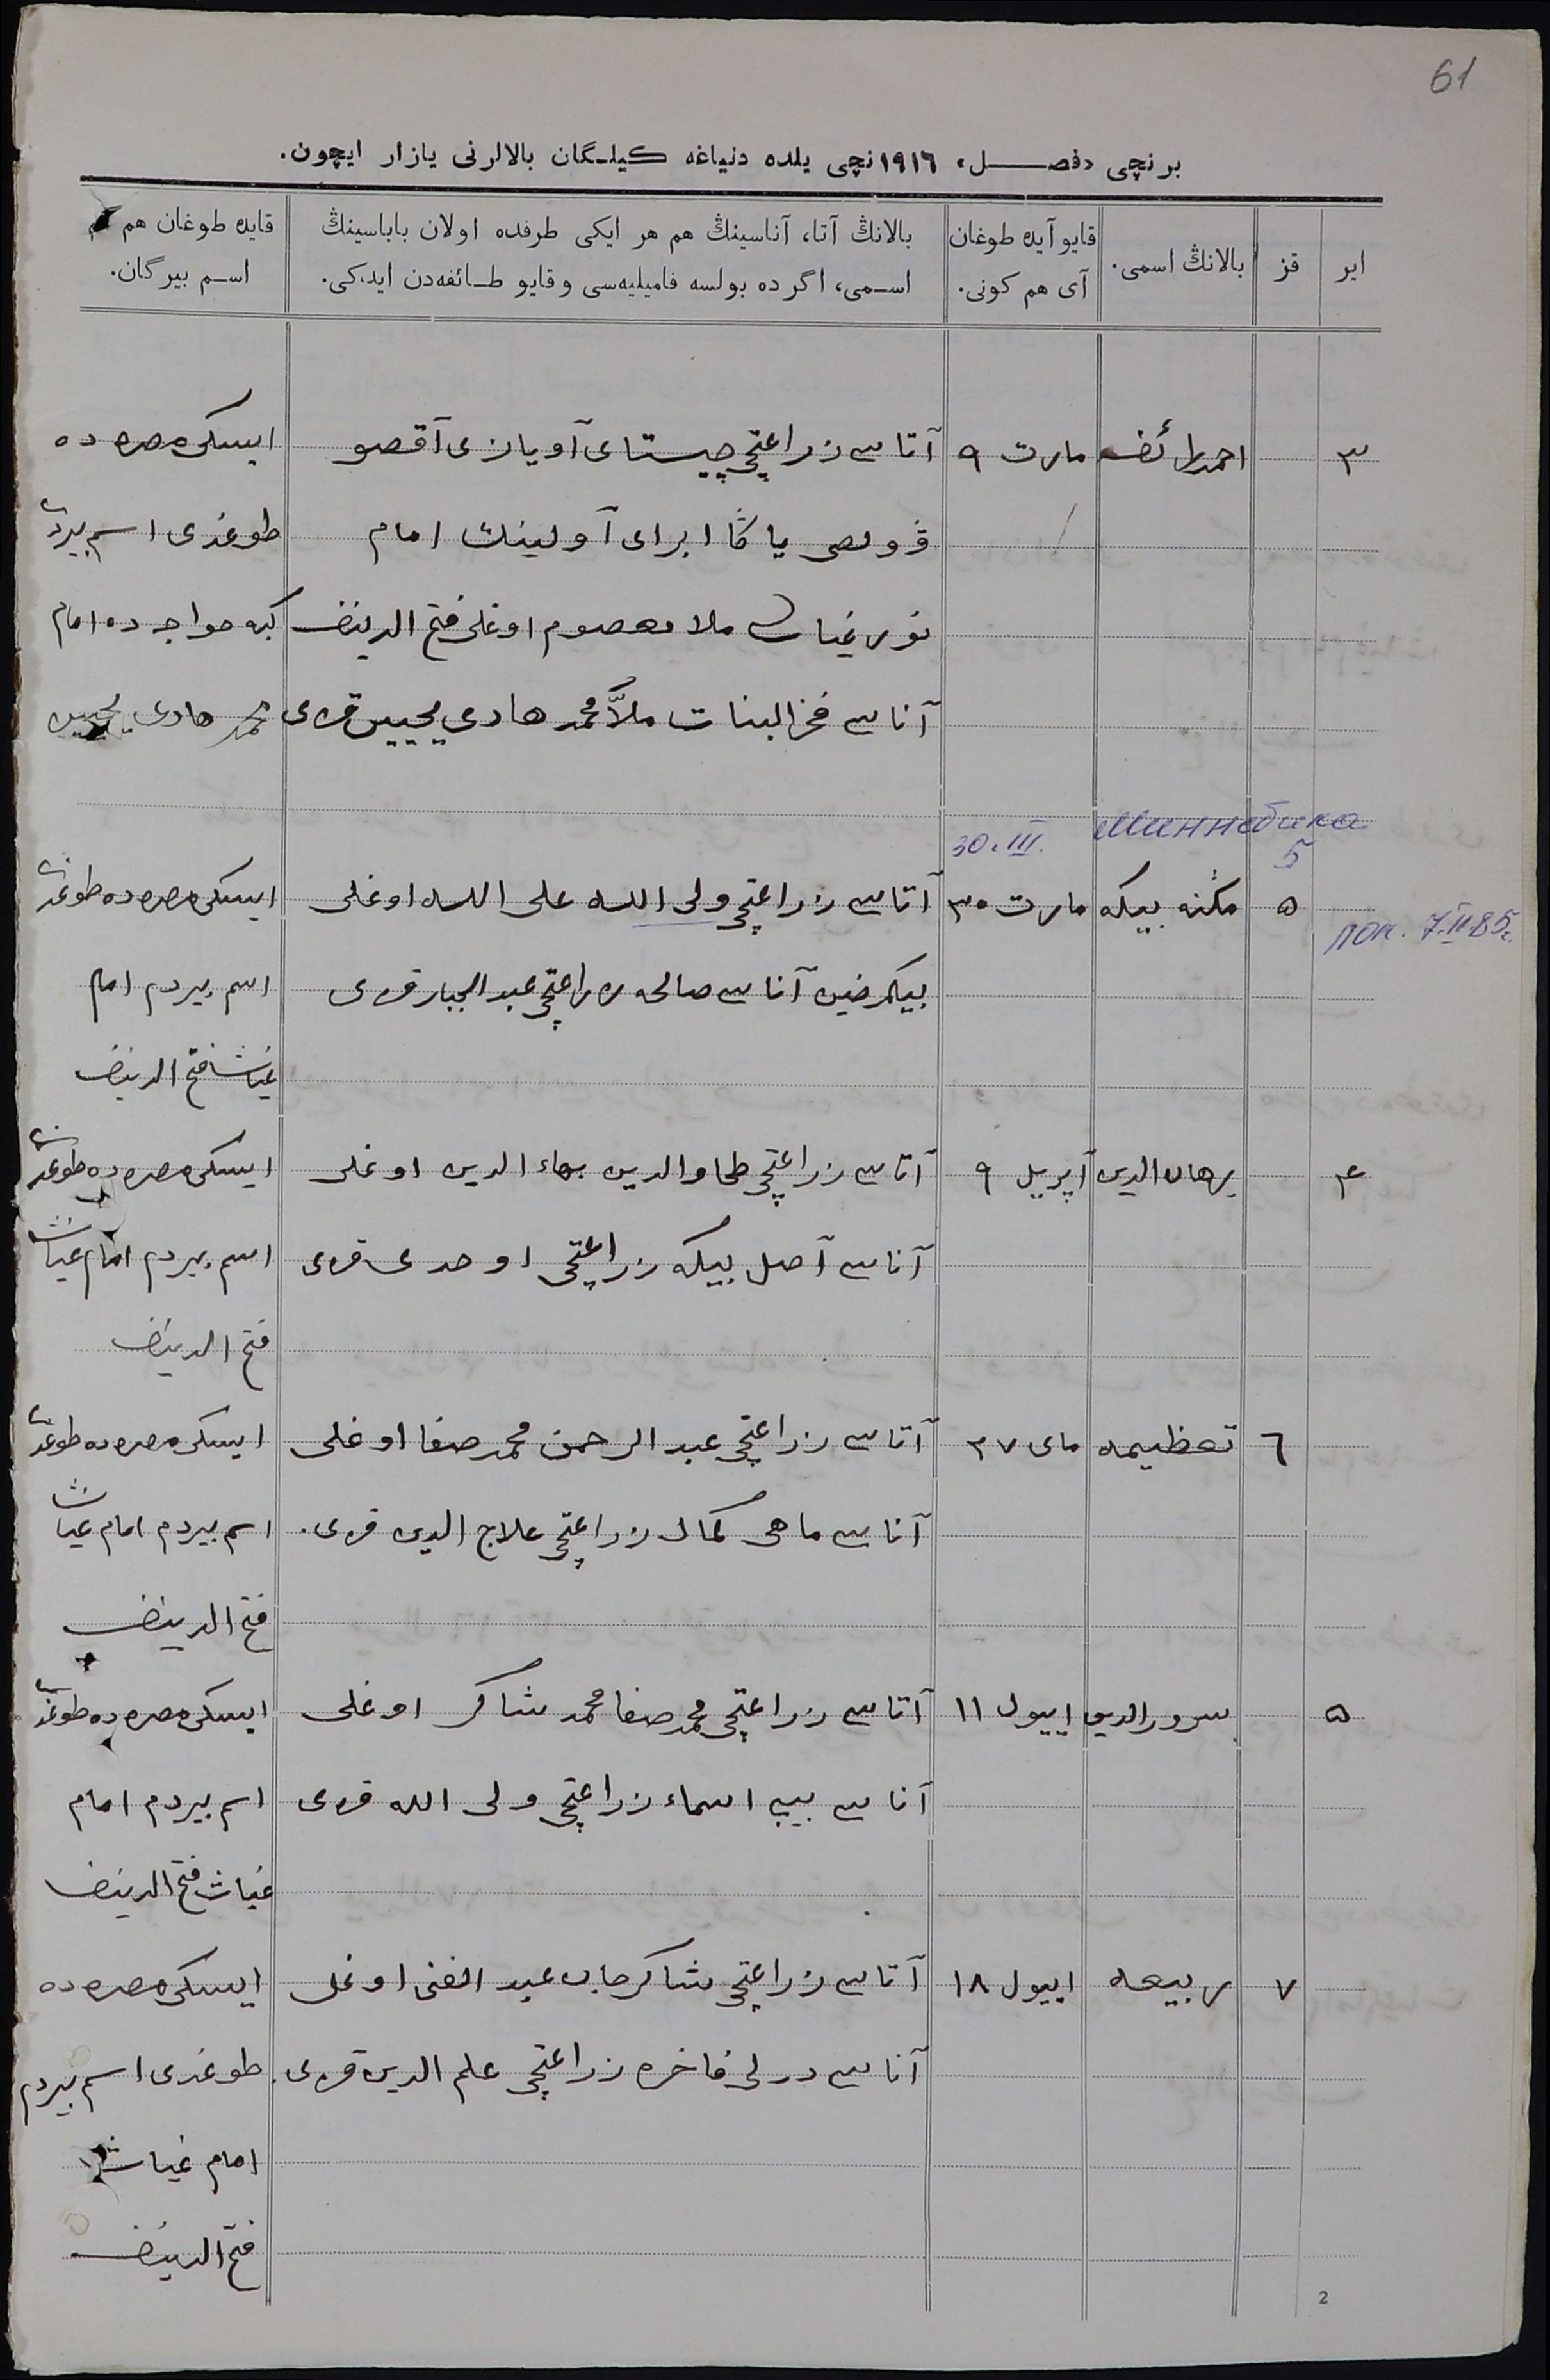 61
برنچی «فصل» ١٩١٦نچی یلده دنیاغه کیلگان بالالرنی یازار ایچون.
ایر
قز
بالانڭ اسمی.
قایو آیده طوغان
آی هم کونی.
بالانڭ آتا، آناسینڭ هم هر ایکی طرفده اولان باباسینڭ
اسمی، اگر ده بولسه فامیلیه‌سی و قایو طائفه‌دن ایدکی.
قایده طوغان هم کم
اسم بیرگان.
٣ احمد رائف مارت ٩ آتاسی زراعتچی چیستای آویازی آقصو ایسکی مصره ده
یاڭا ابرای آولینڭ امام طوغدی اسم بیردی
نور غیاث ملا معصوم اوغلی فتح الدینف
آناسی فخر البنات ملا محمد هادی قزی محمد هادی
30. III. Миннебика
5
٥ مڭنه بیکه مارت ٣٠ آتاسی زراعتچی ولی الله علی الله اوغلی ایسکی مصره ده طوغدی
пок. 7.II.85г.
آناسی صالحه زراعتچی عبد الجبار قزی اسم بیردم امام
غیاث فتح الدینف
٤ برهان الدین آپریل ٩ آتاسی زراعتچی بهاء الدین اوغلی ایسکی مصره ده طوغدی
آناسی آصل بیکه زراعتچی اوحدی قزی اسم بیردم امام غیاث
فتح الدینف
٦ تعظیمه مای ٢٧ آتاسی زراعتچی عبد الرحمن محمد صفا اوغلی ایسکی مصره ده طوغدی
آناسی ماهی کمال زراعتچی علاج الدین قزی. اسم بیردم امام غیاث
فتح الدینف
٥ سرور الدین اییول ١١ آتاسی زراعتچی محمد صفا محمد شاکر اوغلی ایسکی مصره ده طوغدی
آناسی بیبی اسماء زراعتچی ولی الله قزی اسم بیردم امام
غیاث فتح الدینف
٧ ربیعه اییول ١٨ آتاسی زراعتچی شاکرجان عبد الغنی اوغلی ایسکی مصره ده
آناسی درلی فاخره زراعتچی علم الدین قزی. طوغدی اسم بیردم
امام غیاث
فتح الدینف
2